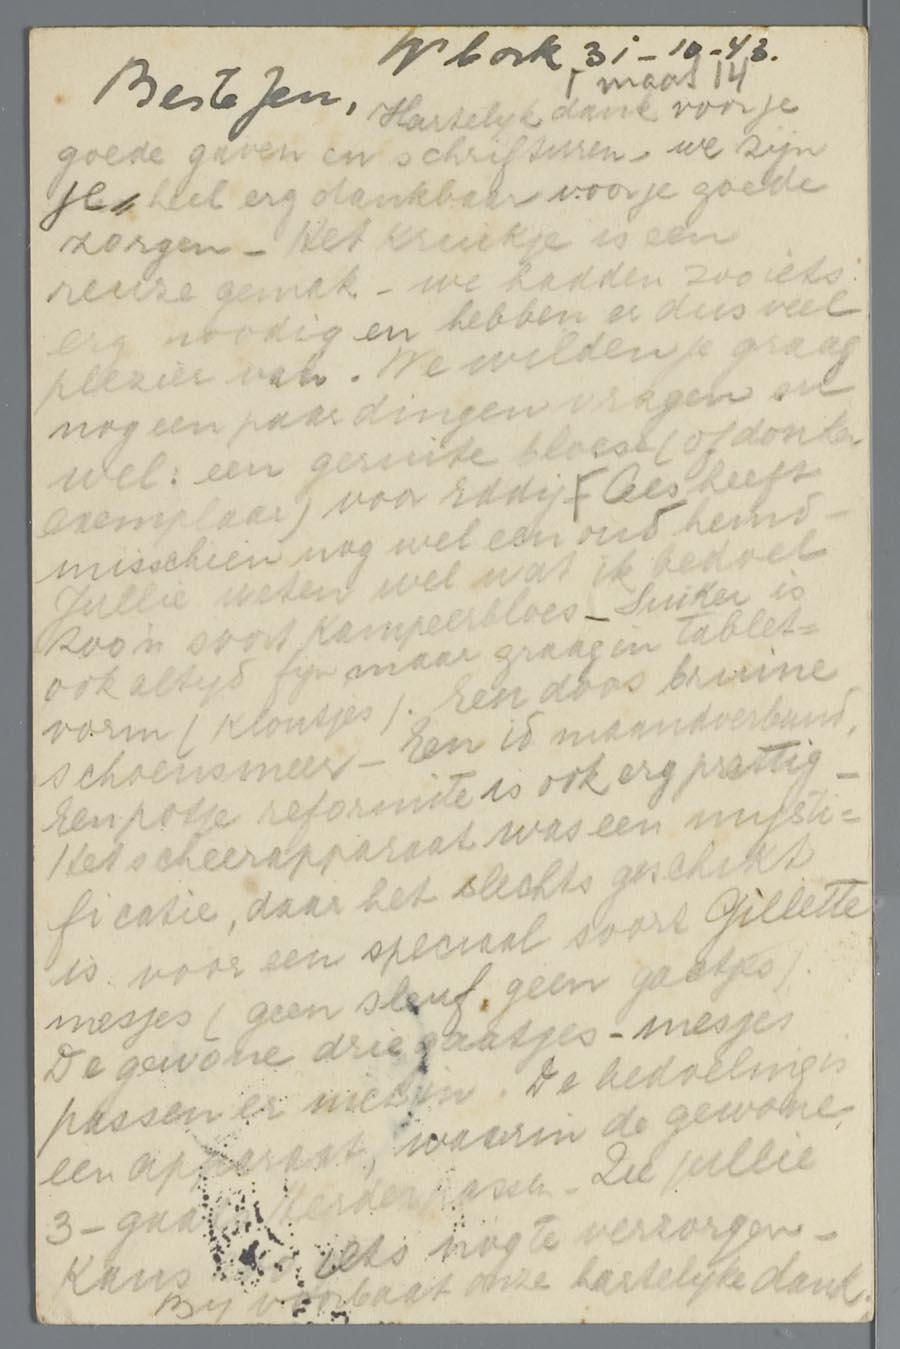 W'bork 31-10-43.
Beste Jen,
┌ maat 14
Hartelyk dank voor je
goede gaven en schrifturen. we zijn
je heel erg dankbaar voor je goede
zorgen - Het kruikje is een
reuze gemak - we hadden zooiets
erg noodig en hebben er dus veel
plezier van. We wilden je graag
nog een paar dingen vragen en
wel: een geruite bloese (of donker
exemplaar) voor Eddij ┌ Cees heeft
misschien nog wel een oud hemd -
Jullie weten wel wat ik bedoel
zoo'n soort kampeerbloes - Suiker is
ook altyd fijn maar graag in tablet=
vorm (klontjes). Een doos bruine
schoensmeer - Een id maandverband,
Een potje reformite is ook erg prettig -
Het scheerapparaat was een mysti=
ficatie, daar het slechts geschikt
is voor een speciaal soort Gillette
mesjes (geen sleuf, geen gaatjes).
De gewone drie gaatjes - mesjes
passen er niet in. De bedoeling is
een apparaat, waarin de gewone
3-gaats passen - Zie jullie
kans iets nog te verzorgen -
By voorbaat onze hartelyke dank.